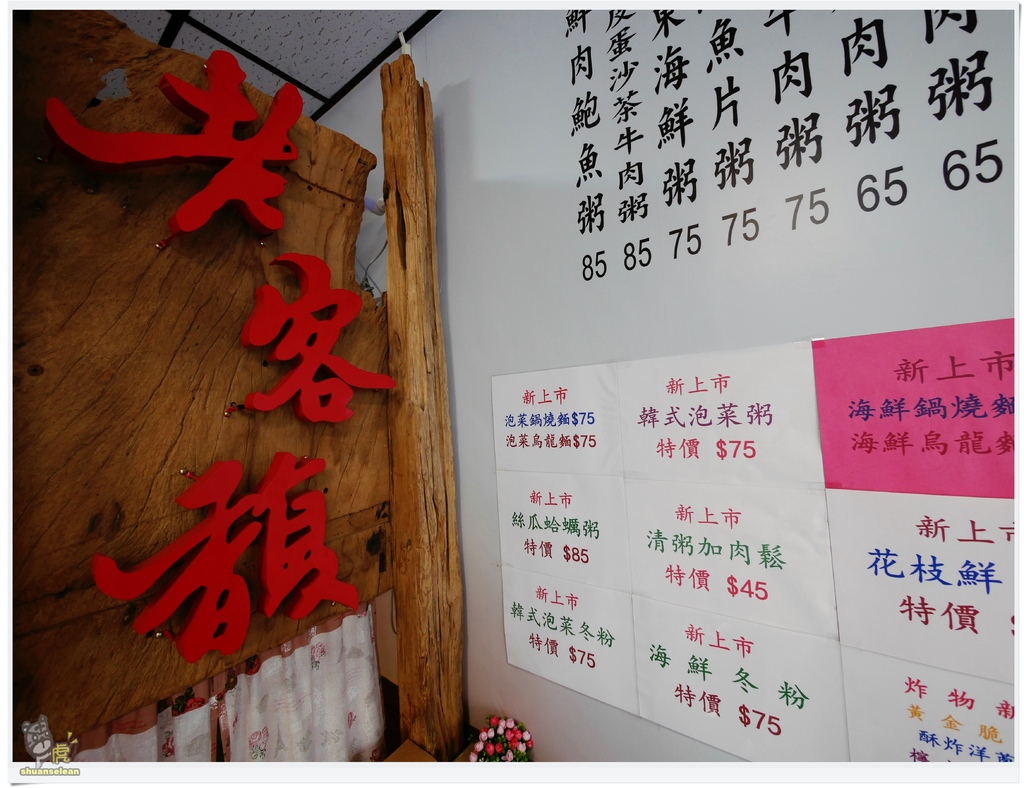 老客顏
鮮肉鮑魚粥 85
皮蛋沙茶牛肉粥 85
東海鮮粥 75
魚片粥 75
牛肉粥 75
肉粥 65
肉粥 65
新上市
泡菜鍋燒麵$75
泡菜烏龍麵$75
新上市
韓式泡菜粥
特價 $75
新上市
海鮮鍋燒麵
海鮮烏龍麵
新上市
絲瓜蛤蠣粥
特價 $85
新上市
清粥加肉鬆
特價 $45
新上市
花枝鮮
特價 $
新上市
韓式泡菜冬粉
特價 $75
新上市
海鮮冬粉
特價 $75
炸物新
黃金脆
酥炸洋蔥
虎
shuanselean